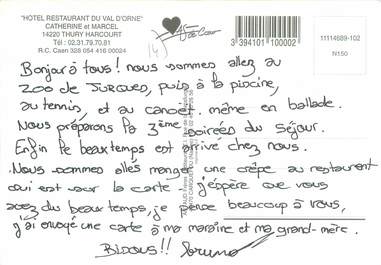 "HOTEL RESTAURANT DU VAL D'ORNE"
CATHERINE et MARCEL
14220 THURY HARCOURT
Tél : 02.31.79.70.81
R.C. Caen 328 054 416 00024
3 394101 100002
11114689-102
N150
Bonjour à tous! nous sommes allez au
zoo de JURQUES, puis à la piscine,
au tennis, et au canoët même en ballade.
Nous préparons la 3ème soirées du séjour.
Enfin le beau temps est arrivé chez nous.
Nous sommes allés manger une crêpe au restaurant
qui est sur la carte - j'éspère que vous
avez du beau temps, je pense beaucoup à vous,
j'ai envoyé une carte à ma maraine et ma grand-mère.
BISOUS!! bruno